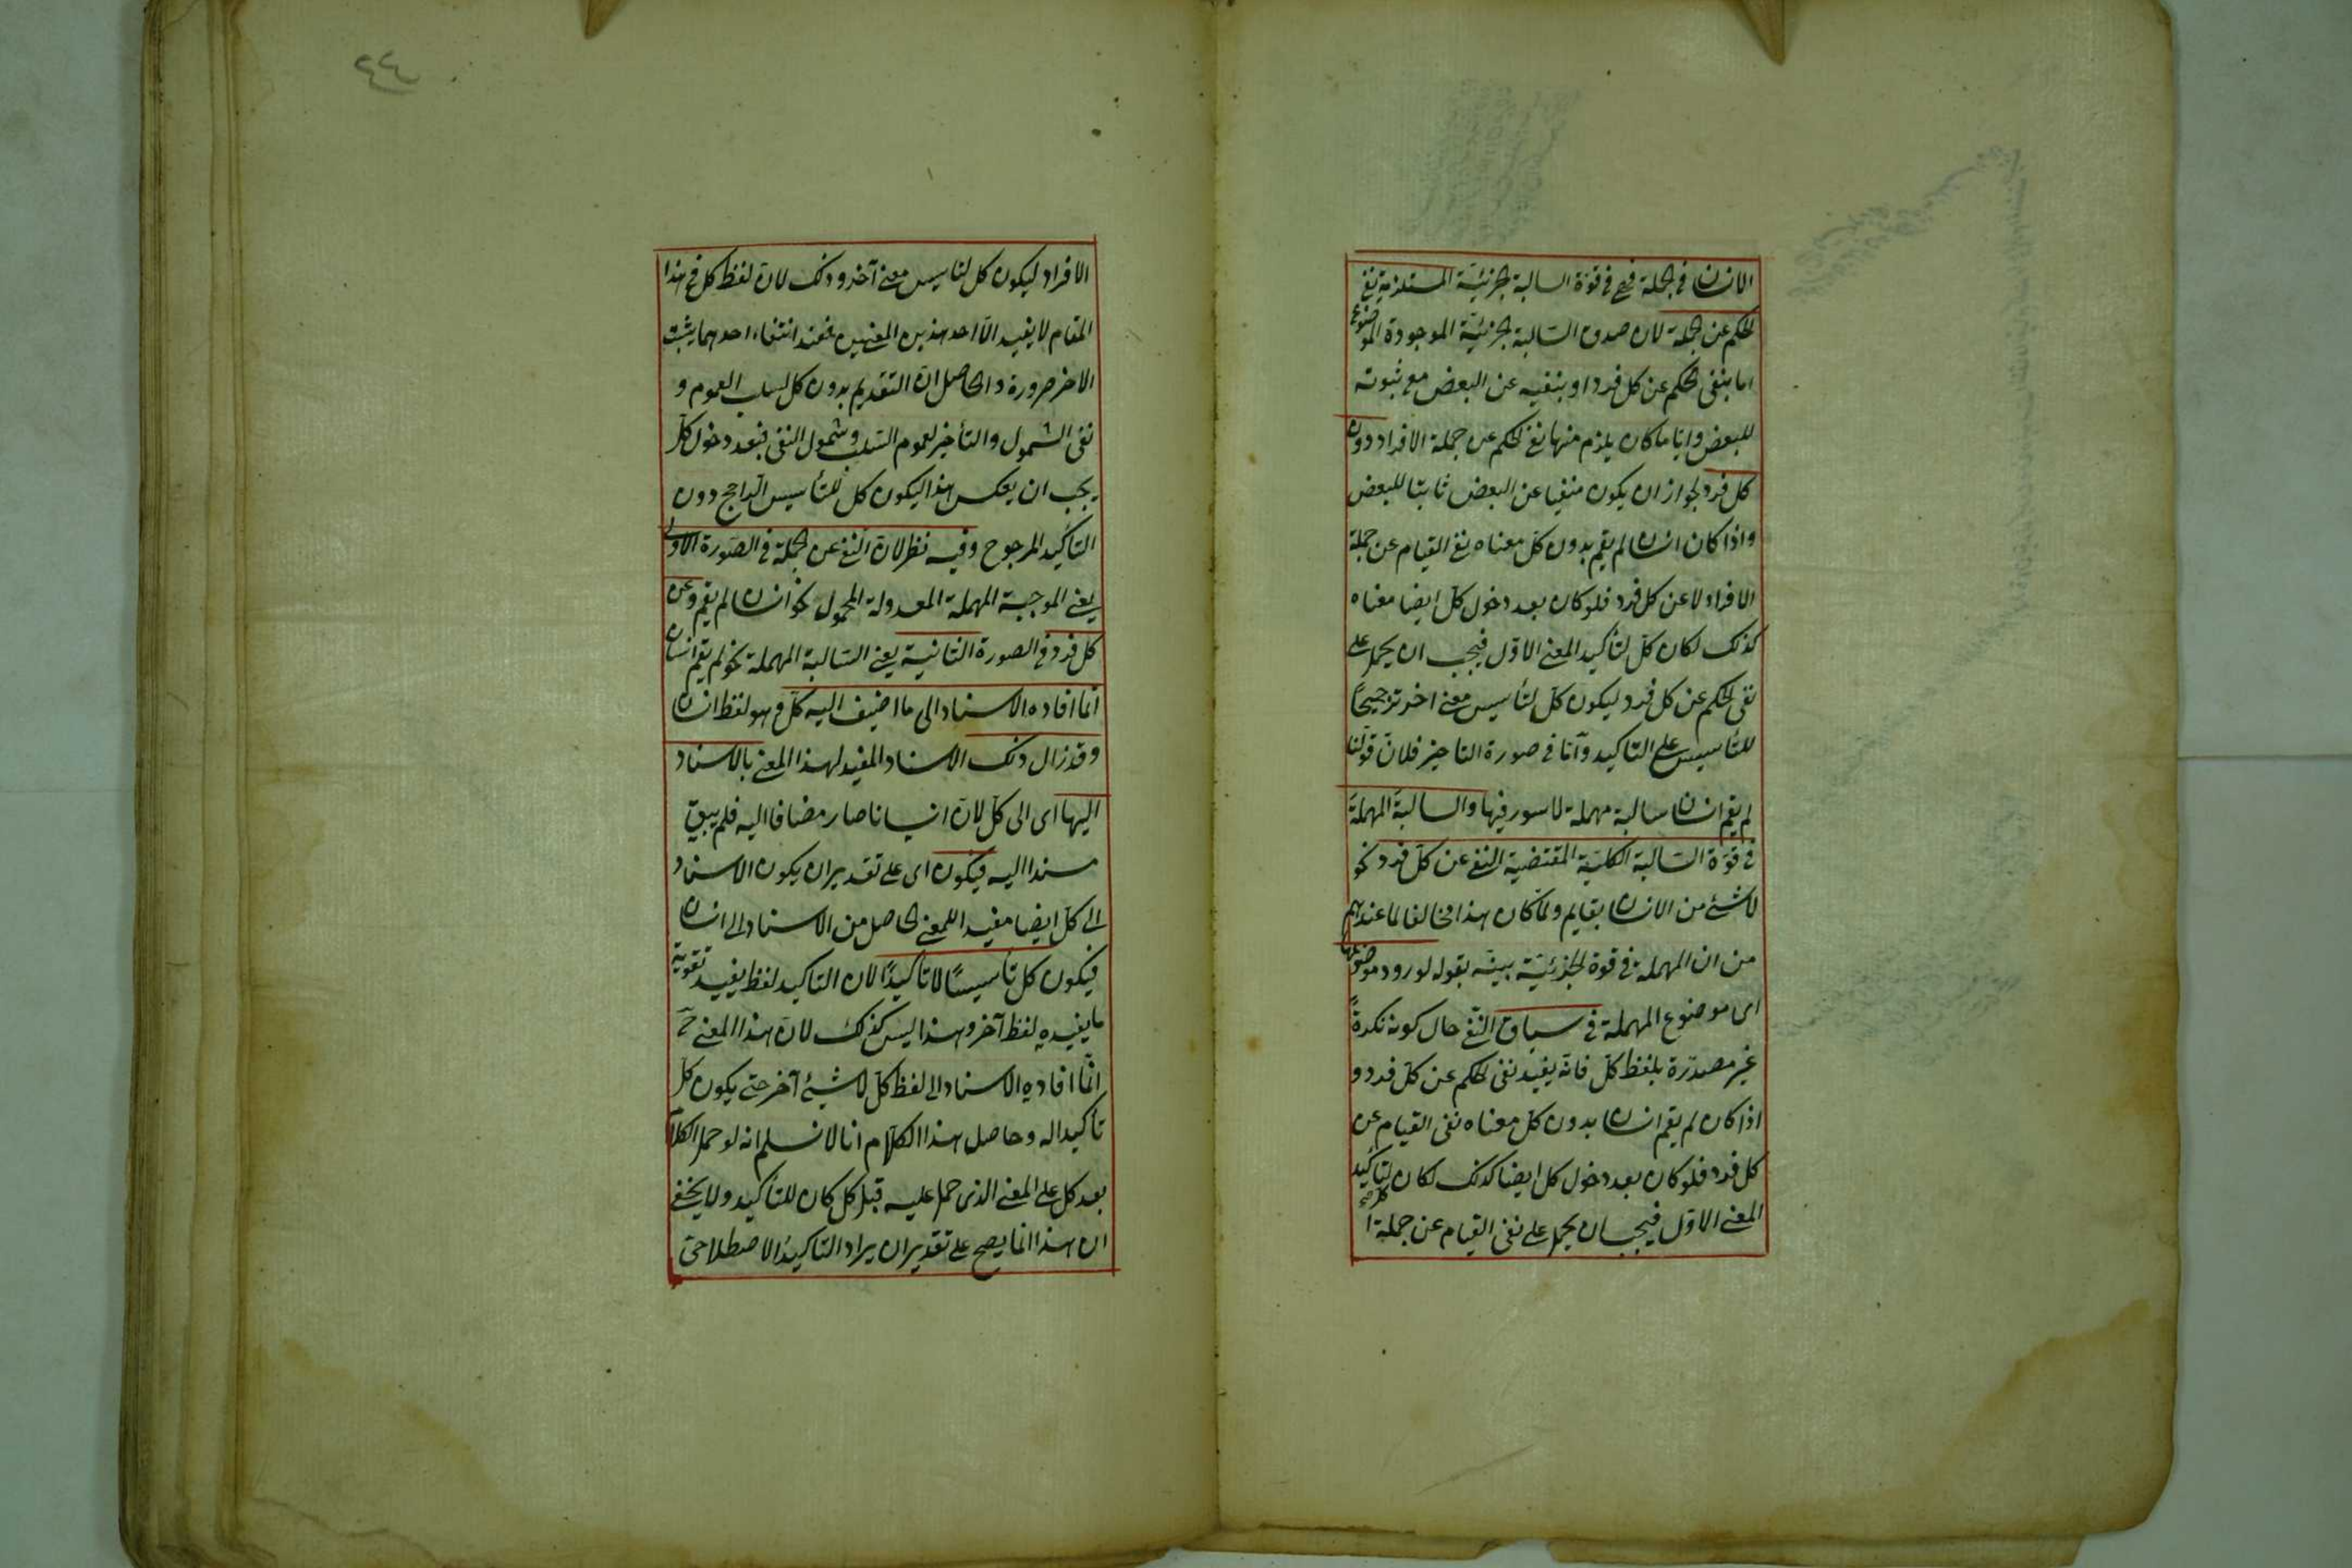 الانسان فى الجملة فهى فى قوة السالبة الجزئية المستلزمة نفى
الحكم عن الجملة لان صدق السالبة الجزئية الموجودة الموضوع
اما بنفى الحكم عن كل فرد او بنفيه عن البعض مع ثبوته
للبعض وايا ما كان يلزم منها نفى الحكم عن جملة الافراد دون
كل فرد لجواز ان يكون منفيا عن البعض ثابتا للبعض
واذا كان انسان لم يقم بدون كل معناه نفى القيام عن جملة
الافراد لا عن كل فرد فلو كان بعد دخول كل ايضا معناه
كذلك لكان كل لتأكيد المعنى الاول فيجب ان يحمل على
نفى الحكم عن كل فرد ليكون كل لتأسيس معنى اخر ترجيحاً
للتأسيس على التاكيد وأما فى صورة التاخير فلان قولنا
لم يقم انسان سالبة مهملة لا سور فيها والسالبة المهملة
فى قوة السالبة الكلية المقتضية النفى عن كل فرد نحو
لا شئ من الانسان بقايم ولما كان هذا مخالفا لما عندهم
من ان المهملة فى قوة الجزئية بينه بقوله لورود موضوعها
اى موضوع المهملة فى سياق النفى حال كونه نكرةً
غير مصدرة بلفظ كل فانه يفيد نفى الحكم عن كل فرد و
اذا كان لم يقم انسان بدون كل معناه نفى القيام عن
كل فرد فلو كان بعد دخول كل ايضا كذلك لكان كل لتأكيد
المعنى الاول فيجب ان يحمل على نفى القيام عن جملة
٤٤
الافراد ليكون كل لتاسيس معنى آخر وذلك لان لفظ كل فى هذا
المقام لا يفيد الا احد هذين المعنيين فعند انتفاء احدهما يثبت
الاخر ضرورة والحاصل ان التقديم بدون كل لسلب العموم و
نفى الشمول والتأخير لعموم السلب وشمول النفى فبعد دخول كل
يجب ان يعكس هذا ليكون كل للتأسيس الراجح دون
التاكيد المرجوح وفيه نظر لان النفى عن الجملة فى الصورة الاولى
يعنى الموجبة المهملة المعدولة المحمول نحو انسان لم يقم وعن
كل فرد فى الصورة الثانية يعنى السالبة المهملة نحو لم يقم انسان
انما افاده الاسناد الى ما اضيف اليه كل وهو لفظ انسان
وقد زال ذلك الاسناد المفيد لهذا المعنى بالاسناد
اليها اى الى كل لان انسانا صار مضافا اليه فلم يبق
مسندا اليه فيكون اى على تقدير ان يكون الاسناد
الى كل ايضا مفيدا للمعنى الحاصل من الاسناد الى انسان
فيكون كل تأسيسًا لا تأكيدًا لان التاكيد لفظ يفيد تقوية
ما يفيده لفظ آخر وهذا ليس كذلك لان هذا المعنى ح
انما افاده الاسناد الى لفظ كل لا شئ آخر حتى يكون كل
تأكيدا له وحاصل هذا الكلام انا لا نسلم انه لو حمل الكلام
بعد كل على المعنى الذى حمل عليه قبل كل كان للتأكيد ولا يخفى
ان هذا انما يصح على تقدير ان يراد التاكيد الاصطلاحى